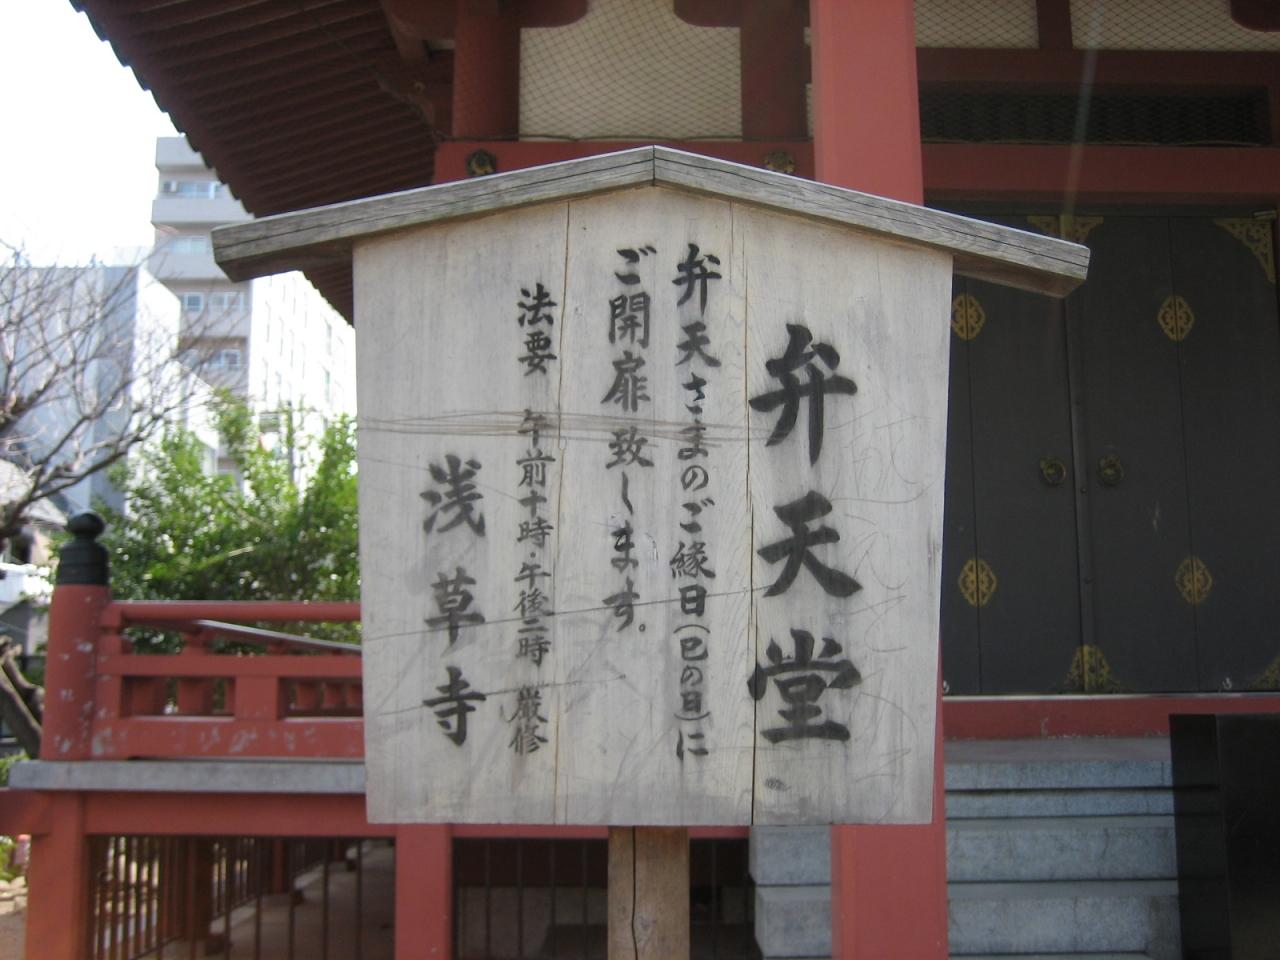 弁天堂
弁天さまのご縁日(巳の日)に
ご開扉致します。
法要 午前十時・午後二時 厳修
浅草寺